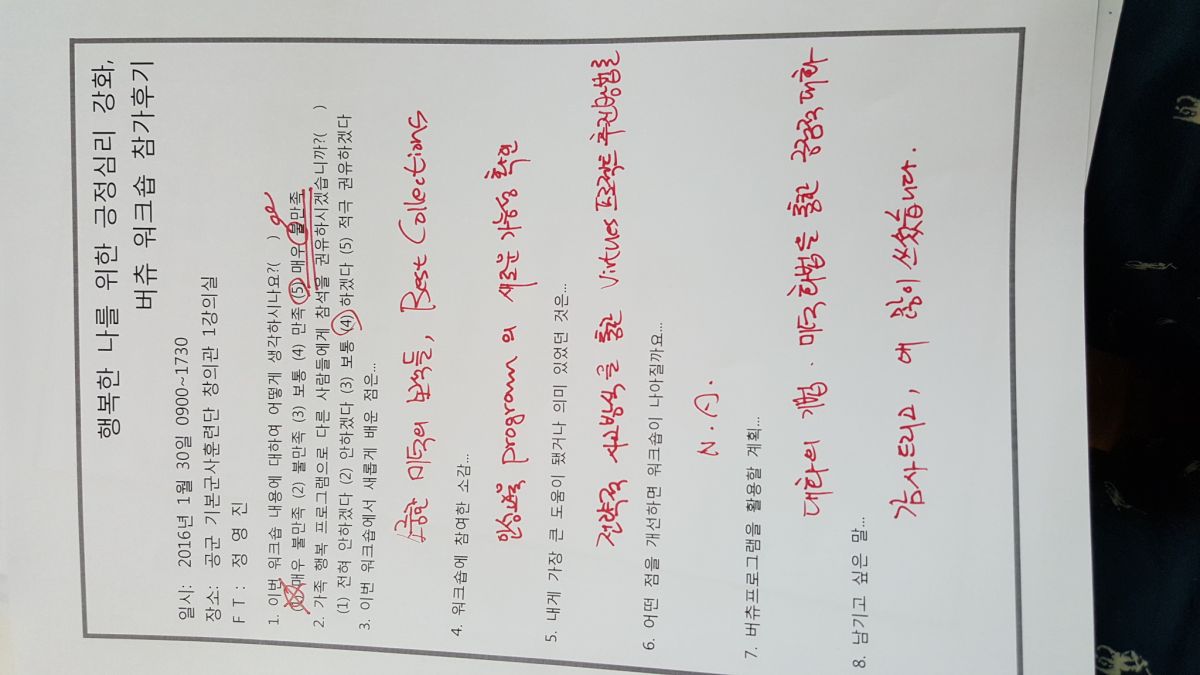 행복한 나를 위한 긍정심리 강화,
버츄 워크숍 참가후기
일시: 2016년 1월 30일 0900~1730
장소: 공군 기본군사훈련단 창의관 1강의실
F T : 정 영 진
1. 이번 워크숍 내용에 대하여 어떻게 생각하시나요?( )
(1) 매우 불만족 (2) 불만족 (3) 보통 (4) 만족 (5) 매우 불만족
2. 가족 행복 프로그램으로 다른 사람들에게 참석을 권유하시겠습니까?( )
(1) 전혀 안하겠다 (2) 안하겠다 (3) 보통 (4) 하겠다 (5) 적극 권유하겠다
3. 이번 워크숍에서 새롭게 배운 점은...
소중한 미덕의 보석들, Best Collections
4. 워크숍에 참여한 소감...
인성교육 program 의 새로운 가능성 확인
5. 내게 가장 큰 도움이 됐거나 의미 있었던 것은...
전략적 사고방식을 통한 Virtues 프로젝트 추진방법론
6. 어떤 점을 개선하면 워크숍이 나아질까요...
N.A.
7. 버츄프로그램을 활용할 계획...
대화의 기법. 미덕화법을 통한 긍정적 대화
8. 남기고 싶은 말...
감사드리고, 애 많이 쓰셨습니다.